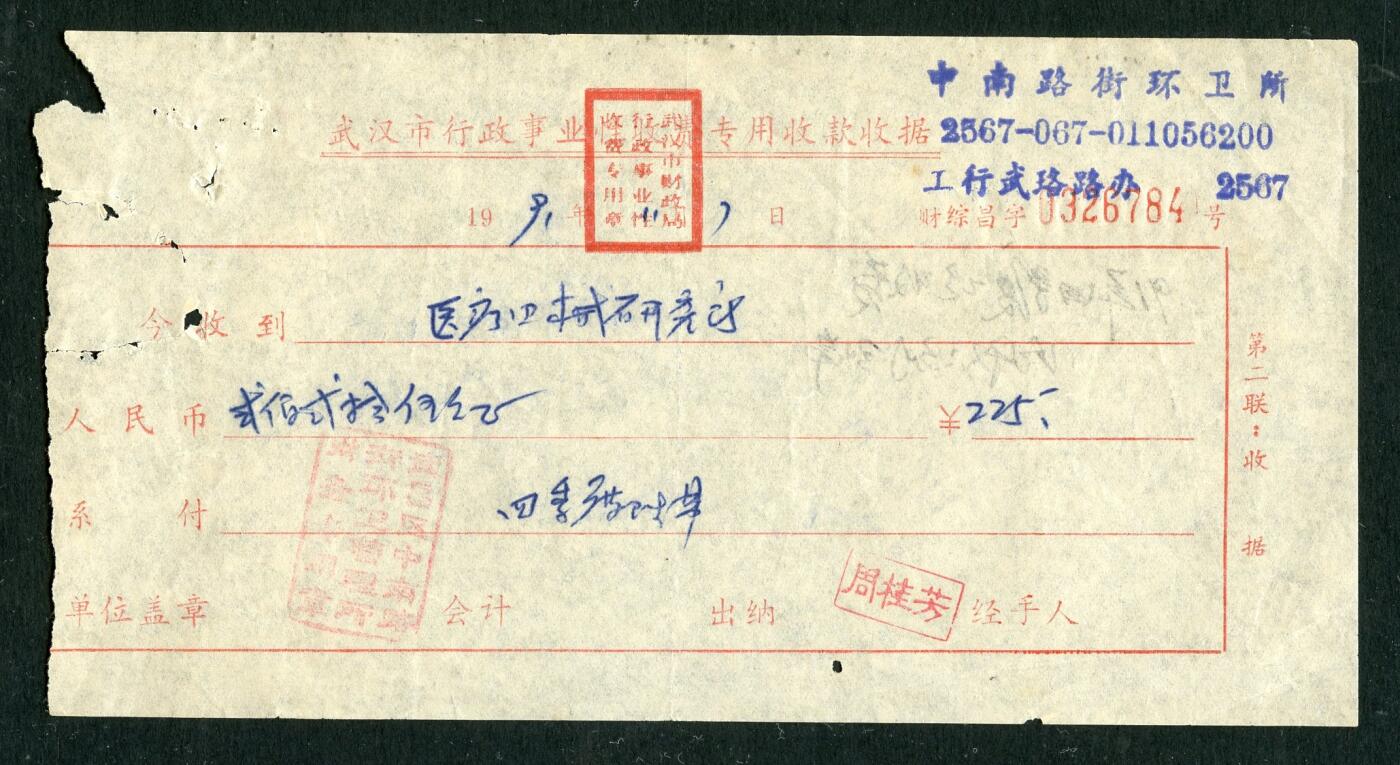 中南路街环卫所
武汉市行政事业性收费专用收款收据
2567-067-011056200
工行武珞路办 2567
武汉市财政局
行政事业性
收费专用章
1991年11月7日
财综昌字0326784号
今收到 医疗卫械研究所
人民币 贰佰贰拾伍元正 ¥225.
系付 四季度
第二联:收据
武昌区中南路
街环卫管理所
单位盖章 会计 出纳 周桂芳 经手人